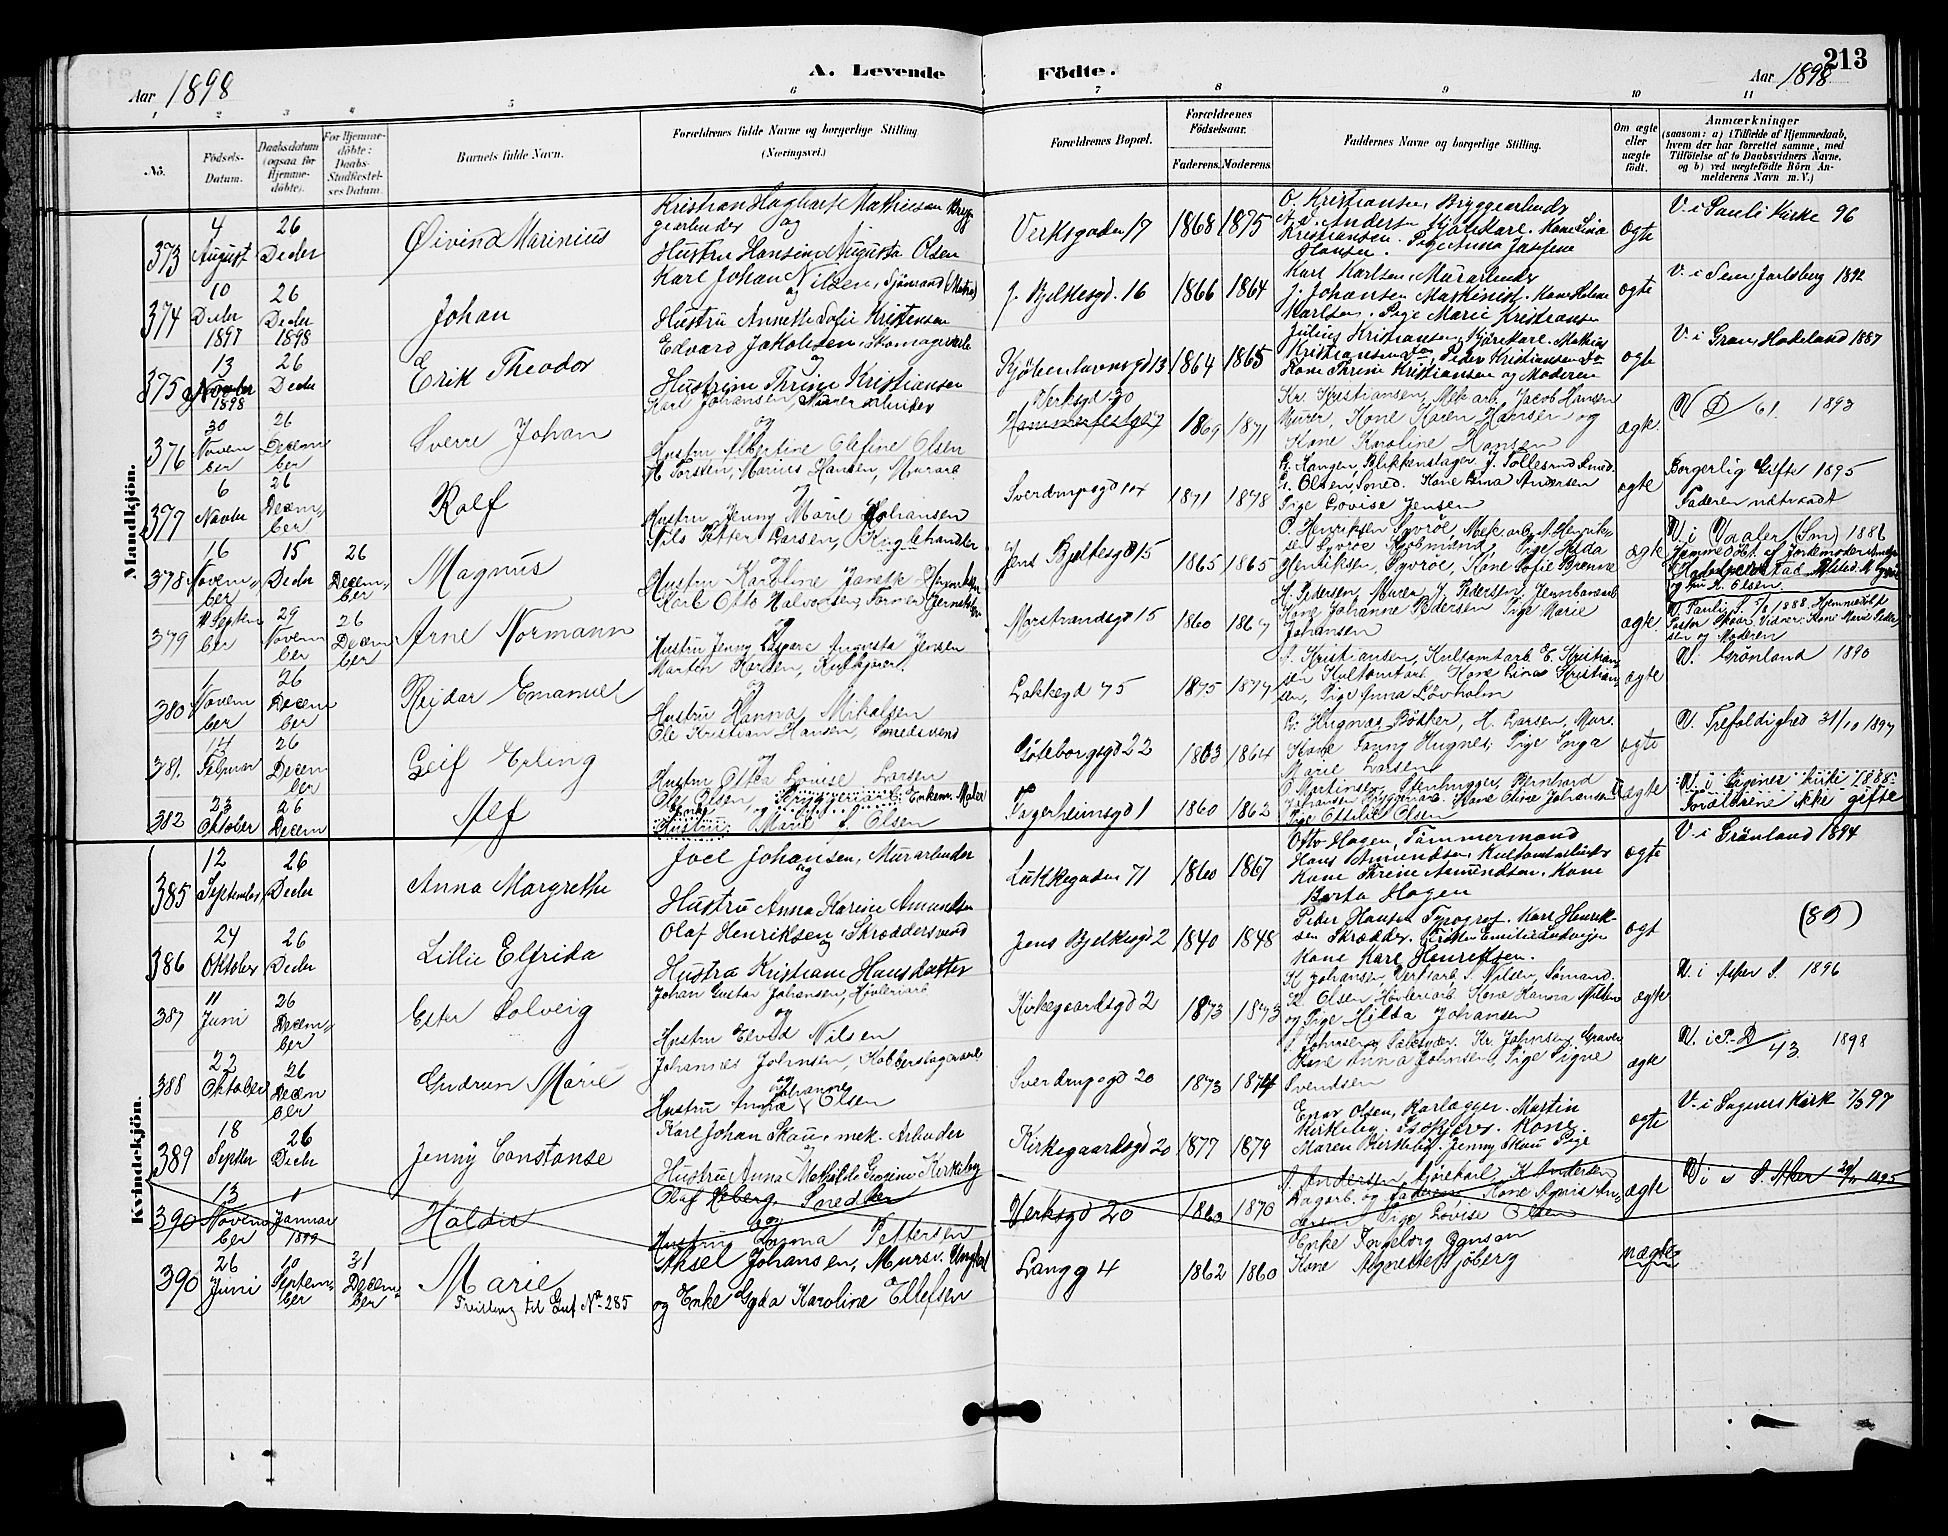 213
A. Levende Födte.
Aar 1898
Aar 1898
1 2 3 4 5 6 7 8 9 10 11
No.
Födsels-Datum.
Daabsdatum (ogsaa for Hjemme-döbte).
For Hjemme-döbte: Daabs-Stadfæstel-ses Datum.
Barnets fulde Navn.
Forældrenes fulde Navne og borgerlige Stilling (Næringsvei.)
Forældrenes Bopæl.
Forældrenes Födselsaar.
Faderens. Moderens.
Faddernes Navne og borgerlige Stilling.
Om ægte eller uægte födt.
Anmærkninger
(saasom: a) i Tilfælde af Hjemmedaab, hvem der har forrettet samme, med Tilföielse af to Daabsvidners Navne, og b) ved uægtefödte Börn An-melderens Navn m. V.)
Mandkjön.
373 4 August 26 Decbr Øivind Marinius
Kristian Hagbart Mathiesen Bryggearbeider og
Hustru Hansine Augusta Olsen
Verksgaden 17 1868 1875
O. Kristiansen, Bryggearbeider
Andersen Kjörekarl. Kone Lina
Kristiansen. Pige Anna Josefine
Hansen.
ægte
V. i Pauls Kirke 96
374 10 Decbr 1897 26 Decbr 1898 Johan
Karl Johan Nilsen, Sjömand (Matros)
og
Hustru Annette Sofie Kristensen
J. Bjelkesgd. 16 1866 1864
Karl Karlsen, Murarbeider
J. Johansen Maskinist. Kone Helene
Karlsen. Pige Marie Kristiansen
ægte
V. i Sem Jarlsberg 1892
375 13 Novbr 1898 26 Decbr Erik Theodor
Edvard Jakobsen, Skomagersvend
og
Hustru Thrine Kristiansen
Kjöbenhavnsgd 13 1864 1865
Julius Kristiansen, Kjörekarl. Mathias
Kristiansen Do, Peder Kristiansen Do
Kone Thrine Kristiansen og Moderen
ægte
V. i Gran, Hadeland 1887
376 30 November 26 December Sverre Johan
Karl Johansen, Murerarbeider
og
Hustru Albertine Olefine Olsen
Verksgd 30
Hammerfestgd 7 1869 1871
Kr. Kristiansen, Mek arb. Jacob Hansen
Murer, Kone Karen Hansen og
Kone Karoline Hansen
ægte.
V. D/61. 1893
377 6 Novbr 26 December Rolf
H Torsten, Marius Hansen, Murarb.
og
Hustru Jenny Marie Johansen
Sverdrupsgd 10x 1871 1878
G. Haugen Blikkenslager J. Tollesrud Smed.
G. Olsen, Smed. Kone Lina Andersen
Pige Lovise Jensen
ægte
Borgerlig Gifte 1895
Faderen udtraadt
378 16 November 15 Decbr 26 December Magnus
Nils Petter Larsen, Kuglehandler
Hustru Karoline Janette Henriksen
Jens Bjelkesgd 15 1865 1865
O. Henriksen Syvröe, Mek arb. N. Henrik-
sen Syvröe Kjöbmand, Pige Hilda
Henriksen, Syvröe, Kone Sofie Brenne
ægte
V. i Vaaler (Sm) 1886
Hjemmedöbt af Jordemoder
og Fru A. Olsen
379 11 September 29 November 26 December Arne Normann
Karl Otto Halvorsen, Former Jernstöberi
og
Hustru Jenny Augusta Jensen
Marstrandsgd 15 1860 1867
H. Pedersen, Murer J. Pedersen Jernbanearb
Kone Johanne Pedersen Pige Marie
Johansen
ægte.
V. Pauls S. 7/8 1888. Hjemmedöbt
Pastor Skaar Vidner: Kone Marie Peder-
sen og Moderen
380 1 November 26 December Reidar Emanuel
Martin Karlsen, Kulkjörer.
og
Hustru Hanna Mikalsen
Lakkegd 75 1875 1877
J. Kristiansen, Kultomtarb. E. Kristian-
sen Kultomtarb Kone Lina Kristian-
sen, Pige Anna Lövholm
ægte
V. Grönland 1890
381. 14 Februar 26 December Leif Erling
Ole Kristian Hansen, Smedsvend
og
Hustru Otta Lovise Larsen
Göteborgsgd 22 1863 1864
G. Hugnæs Bödker, H. Larsen, Mur.
Kone Fanny Hugnes; Pige Inga
Marie Larsen
ægte
V. Trefoldighed 31/10 1897
382 23 Oktober 26 Decem Alf
Ole Olsen, Bryggeriarb. Enkem. Maler
og
Hustru Marie S. Olsen
Fagerheimsgd 1 1860 1862
O. Martinsen, Stenhugger, Bernhard
Johansen Bryggeriarb. Kone Oline Johansen
Pige Ottilie Olsen
uægte
V. i Sagenes kirke 1888
Forældrene ikke gifte
Kvindekjön.
385 12 September 26 Decbr Anna Margrethe
Joel Johansen, Murarbeider
og
Hustru Anna Karine Amundsen
Lakkegaden 71 1860 1867
Otto Hagen, Tömmermand
Hans Amundsen, Kultomtarbeider
Kone Thrine Amundsen. Kone
Berta Hagen
ægte
V. i Grönland 1894
386 24 Oktober 26 Decbr Lillie Elfrida
Olaf Henriksen, Skræddersvend
og
Hustru Kristiane Hansdatter
Jens Bjelkesgd 2 1840 1848
Peder Hansen Typograf. Karl Henrik-
sen Skrædder. Emilie Ludvigsen
Kone Karl Henriksen.
ægt
387 11 Juni 26 December Ester Solveig
Johan Gustav Johansen, Hövleriarb
og
Hustru Eevid Nilsen
Kirkegaardsgd 2 1873 1873
K. Johansen, Verksarb. S. Nilsen, Sömand.
K. Olsen Hövleriarb. Kone Hanna Nilsen
og Pige Hilda Johansen
ægte
V. i Asker S. 1896
388 22 Oktober 26 December Gudrun Marie
Johannes Johnsen, Kobberslagersvend
og
Hustru Anna Johanne Olsen
Sverdrupsgd 20 1873 1874
Kr. Johnsen, Graver
Kone Anna Johnsen, Pige Signe
Svendsen
ægte
V. i P. D/43 1898
389 18 Septbr 26 Decbr Jenny Constanse
Karl Johan Skau, mek. Arbeider
og
Hustru Anna Mathilde Georgine Kirkeby
Kirkegaardsgd 20 1877 1879
Enar Olsen, Kartægger. Martin
Kirkeby. Kone
Maren Kirkeby. Jenny Skau Pige
ægte
V. i Sagenes Kirk 7/3 97
390 13 November 1 Januar 1899 Haldis
Olaf Heberg Snedker
og
Hustru Emma Pettersen
Verksgd 20 1860 1870
J. Andersen Kjörekarl K. Andersen
Dagarb. og Faderen Kone Agnis An-
dersen Pige Lovise Olsen
ægte
V. i S. Aker 29/11 1895
390 26 Juni 10 September 31 December Marie
Tvilling til Gut No 285
Aksel Johansen, Mursv. Ungkarl
og Enke Gyda Karoline Ellefsen
Langg 4 1862 1860
Enke Ingeborg Jansen
Kone Agnethe Sjöberg
uægte